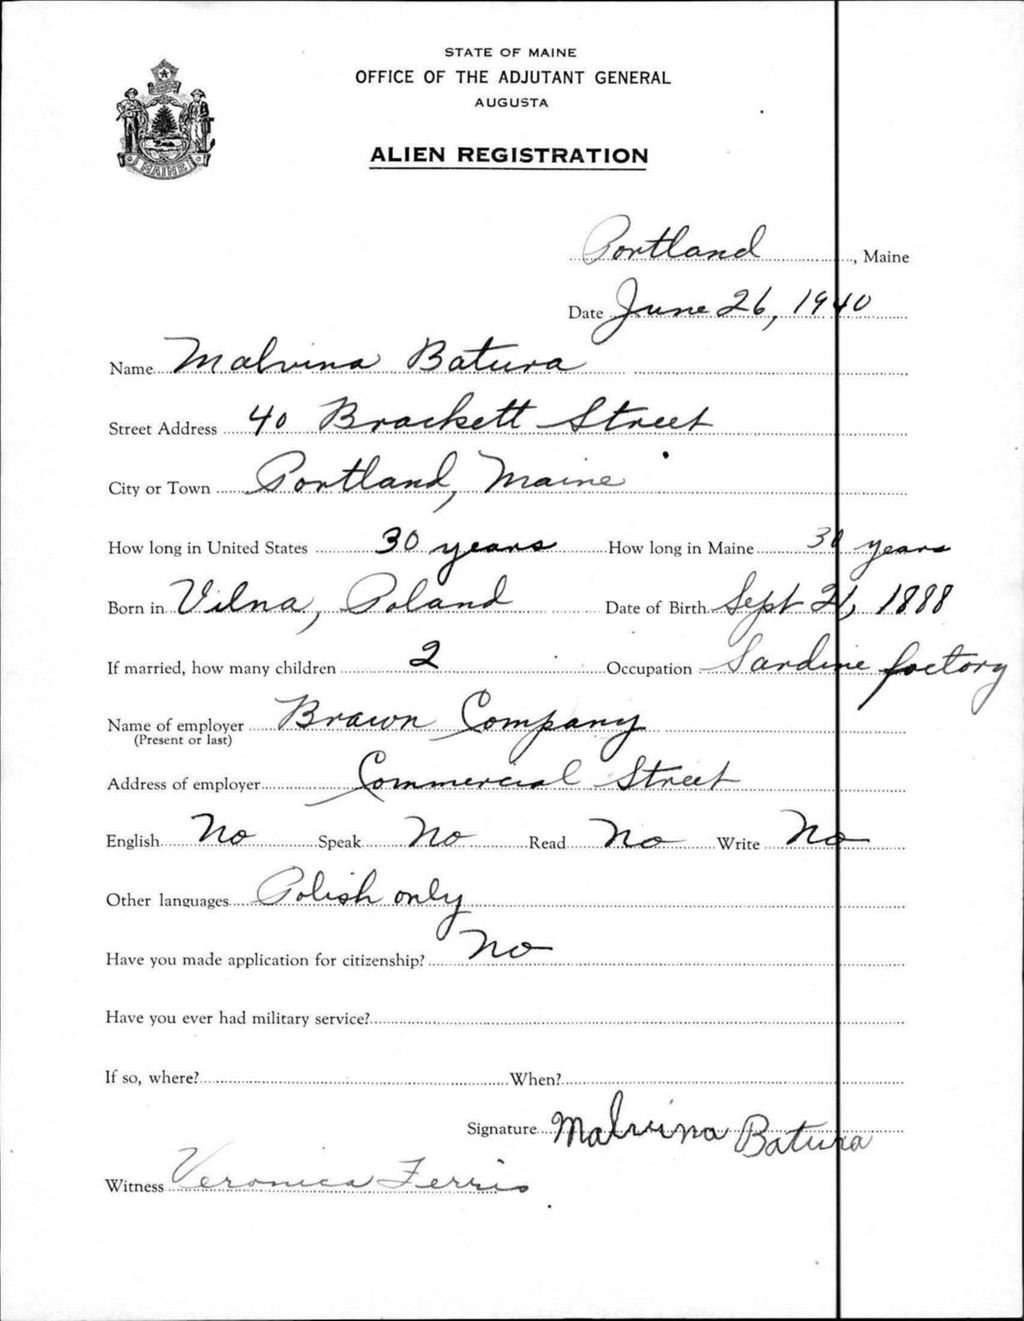 STATE OF MAINE
OFFICE OF THE ADJUTANT GENERAL
AUGUSTA
ALIEN REGISTRATION
MAINE
Portland, Maine
Date June 26, 1940
Name Malvina Batura
Street Address 40 Brackett Street
City or Town Portland, Maine
How long in United States 30 years How long in Maine 30 years
Born in Vilna, Poland Date of Birth Sept 21, 1888
If married, how many children 2 Occupation Sardine factory
Name of employer Brawn Company
(Present or last)
Address of employer Commercial Street
English No Speak No Read No Write No
Other languages Polish only
Have you made application for citizenship? No
Have you ever had military service?
If so, where? When?
Signature Malvina Batura
Witness Veronica Ferris